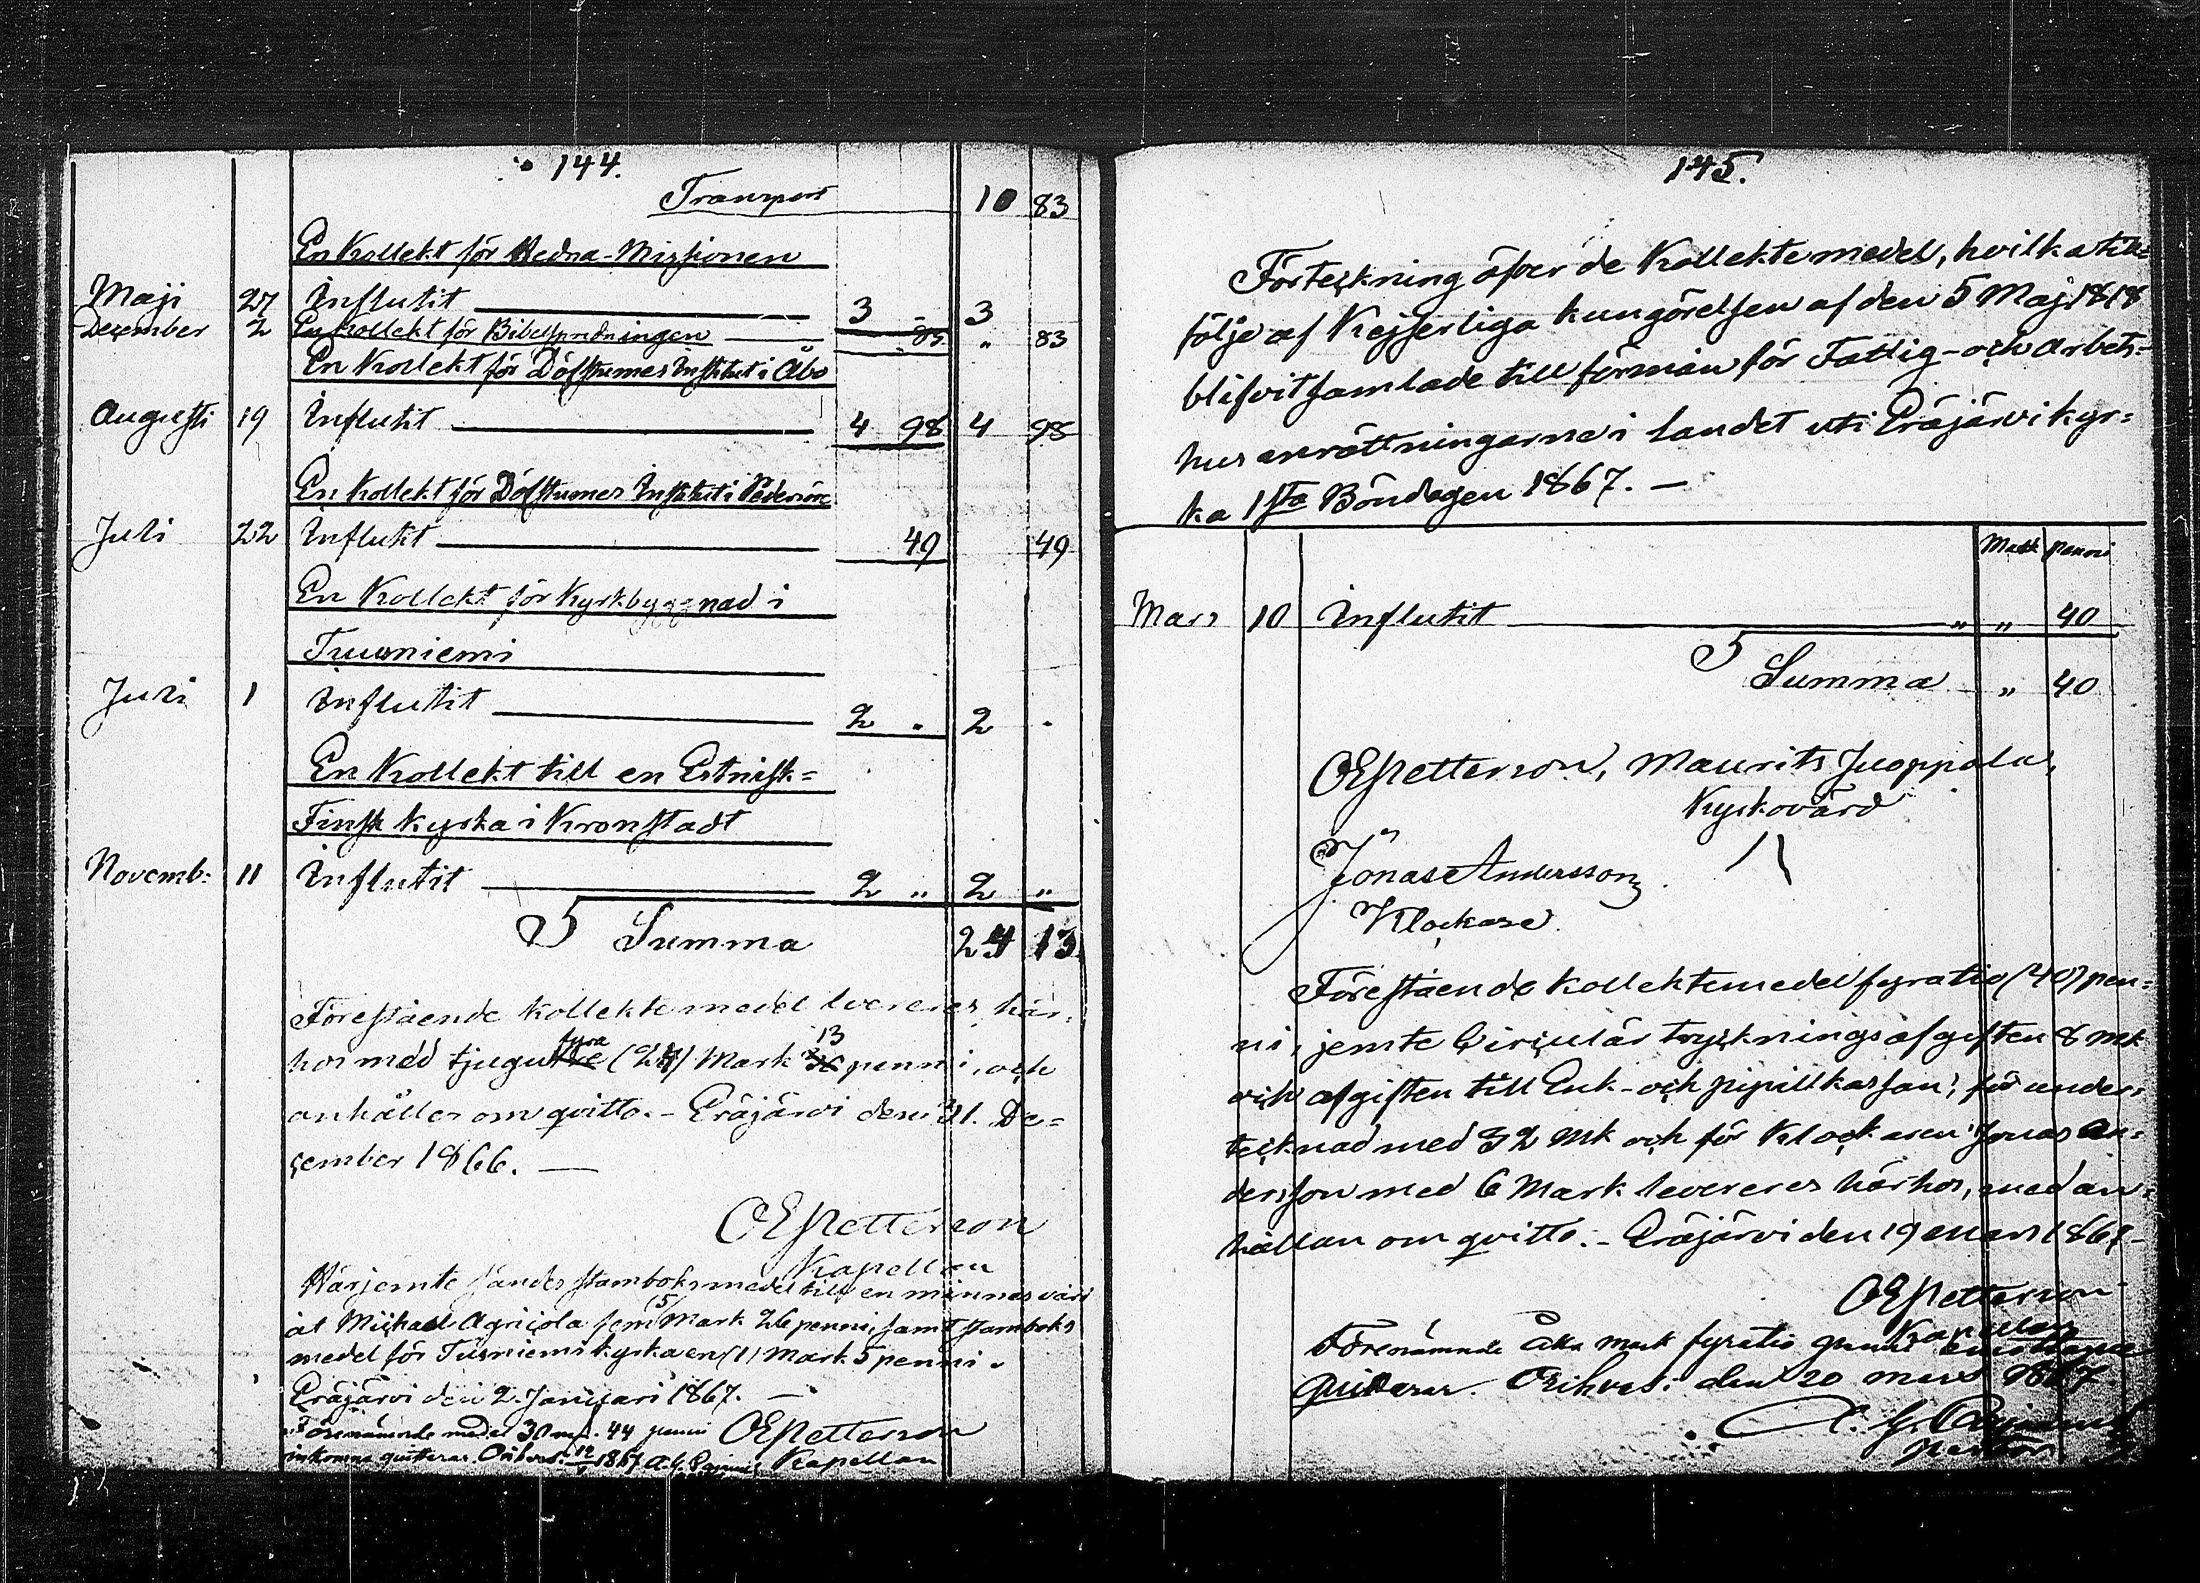 144.
Transport 10 83
En Kollekt för Hedna-Missionen
Maji 27 Influtit 3 - 3
December 2 En Kollekt för Bibelspridningen " 83 " 83
En Kollekt för Döfstumes Institut i Åbo
Augusti 19 Influtit 4 98 4 98
En Kollekt för Döfstumes Institut i Pedersöre
Juli 22 Influtit 49 49
En Kollekt för Kyrkbyggnad i
Tuusniemi
Juli 1 Influtit 2 " 2 "
En Kollekt till en Estnisk-
Finsk kyrka i Kronstadt
Novemb: 11 Influtit 2 " 2 "
Summa 24 13
Förestående kollektemedel levereras här-
hos med tjugu fyra (24) Mark 13 penni, och
anhålles om qvitto. - Eräjärvi den 31. De=
cember 1866. —
OE Petterson
Kapellan
Härjemte sändes stamboksmedel till en minnesvård
åt Michael Agricola fem 5/ Mark 26 penni, samt stamboks
medel för Tusniemi kyrka en (1) Mark 5 penni.
Eräjärvi den 2. Januari 1867. —
Förenämnde medel 30 mk. 44 penni OE Petterson
inkomne qvitteras. 1867 Kapellan
145.
Förteckning öfver de Kollektemedel, hvilka till-
följe af Kejserliga kungörelsen af den 5 Maj 1818
blifvit samlade till förmån för Fattig- och arbets-
husanrättningarne i landet uti Eräjärvi kyr=
ka 1sta Böndagen 1867. —
Mark penni
Mars 10 Influtit " " 40
Summa " 40
OE Petterson, Maurits Juoppala,
Kyrkovärd
Jonas Andersson
Klockare.
Förestående kollektemedel fyratio (40) pen=
ni, jemte Circulär tryckningsafgiften 8 mk
och afgiften till Enk- och pupillkassan, för under-
tecknad med 32 Mk och för Klockaren Jonas An=
dersson med 6 Mark levereres härhos, med an=
hållan om qvitto. - Eräjärvi den 19 Mars 1867 -
OE Petterson
Kapellan
Förenämnde åtta mark fyratio penni
Quitteras. Orihvesi den 20 mars 1867
pastor